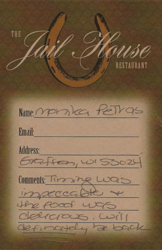 THE
Jail House
RESTAURANT
Name monika Petras
Email:
Address:
Grafton, WI 53024
Comments: Timing was
impeccable &
the food was
delicious. will
definately be back